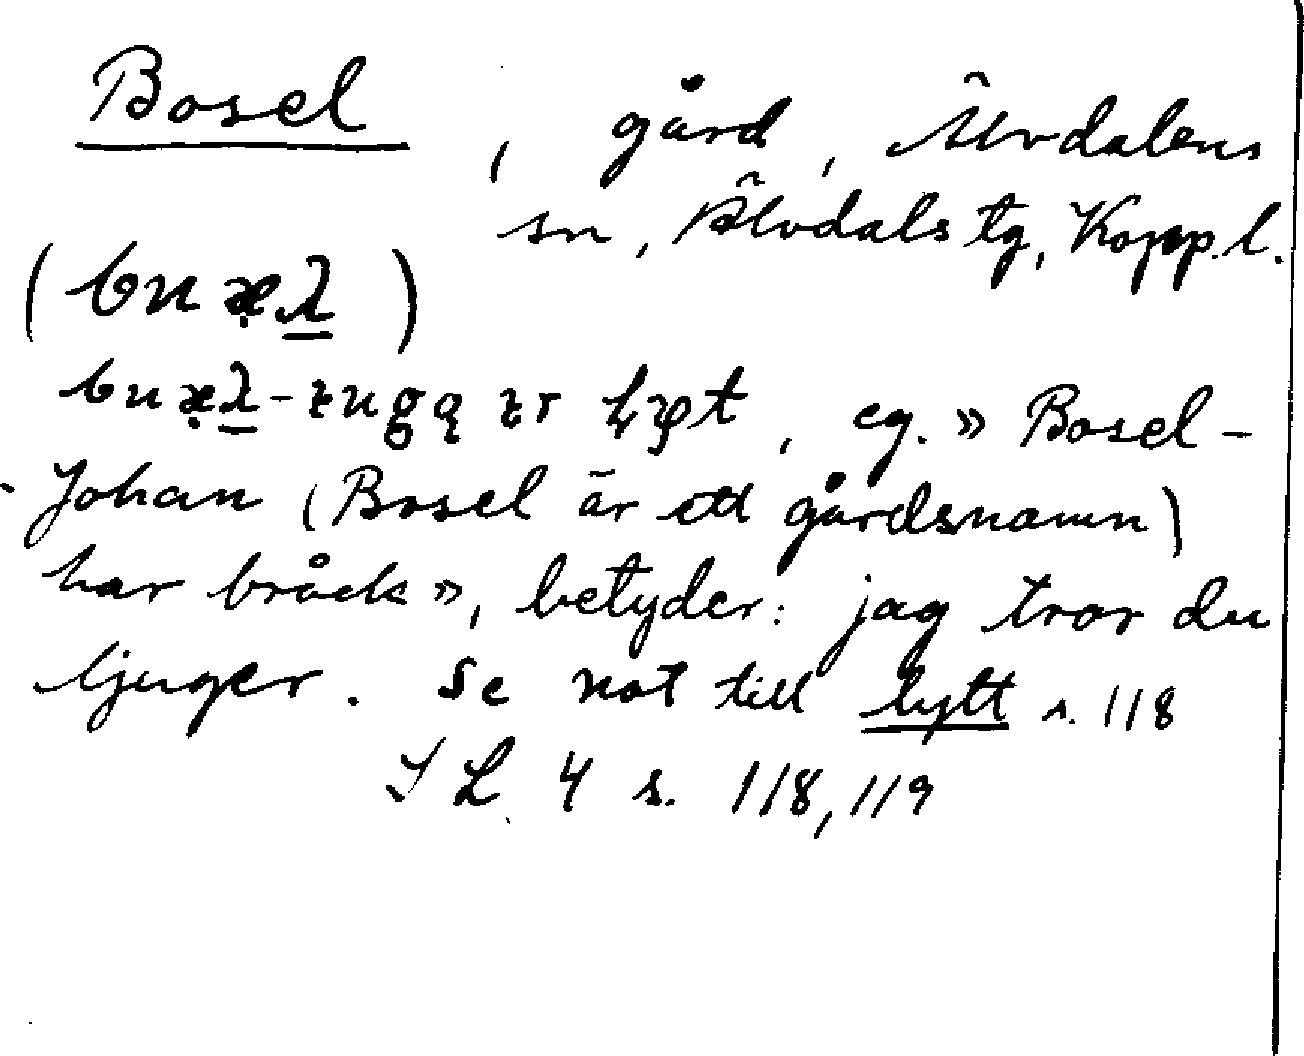 Bosel, gård, Älvdalens
sn, Älvdals tg, Kopp. l.
Bosel-
Johan (Bosel är ett gårdsnamn)
har bråck», betyder: jag tror du
ljuger. Se not till lytt s. 118
SL 4 s. 118, 119